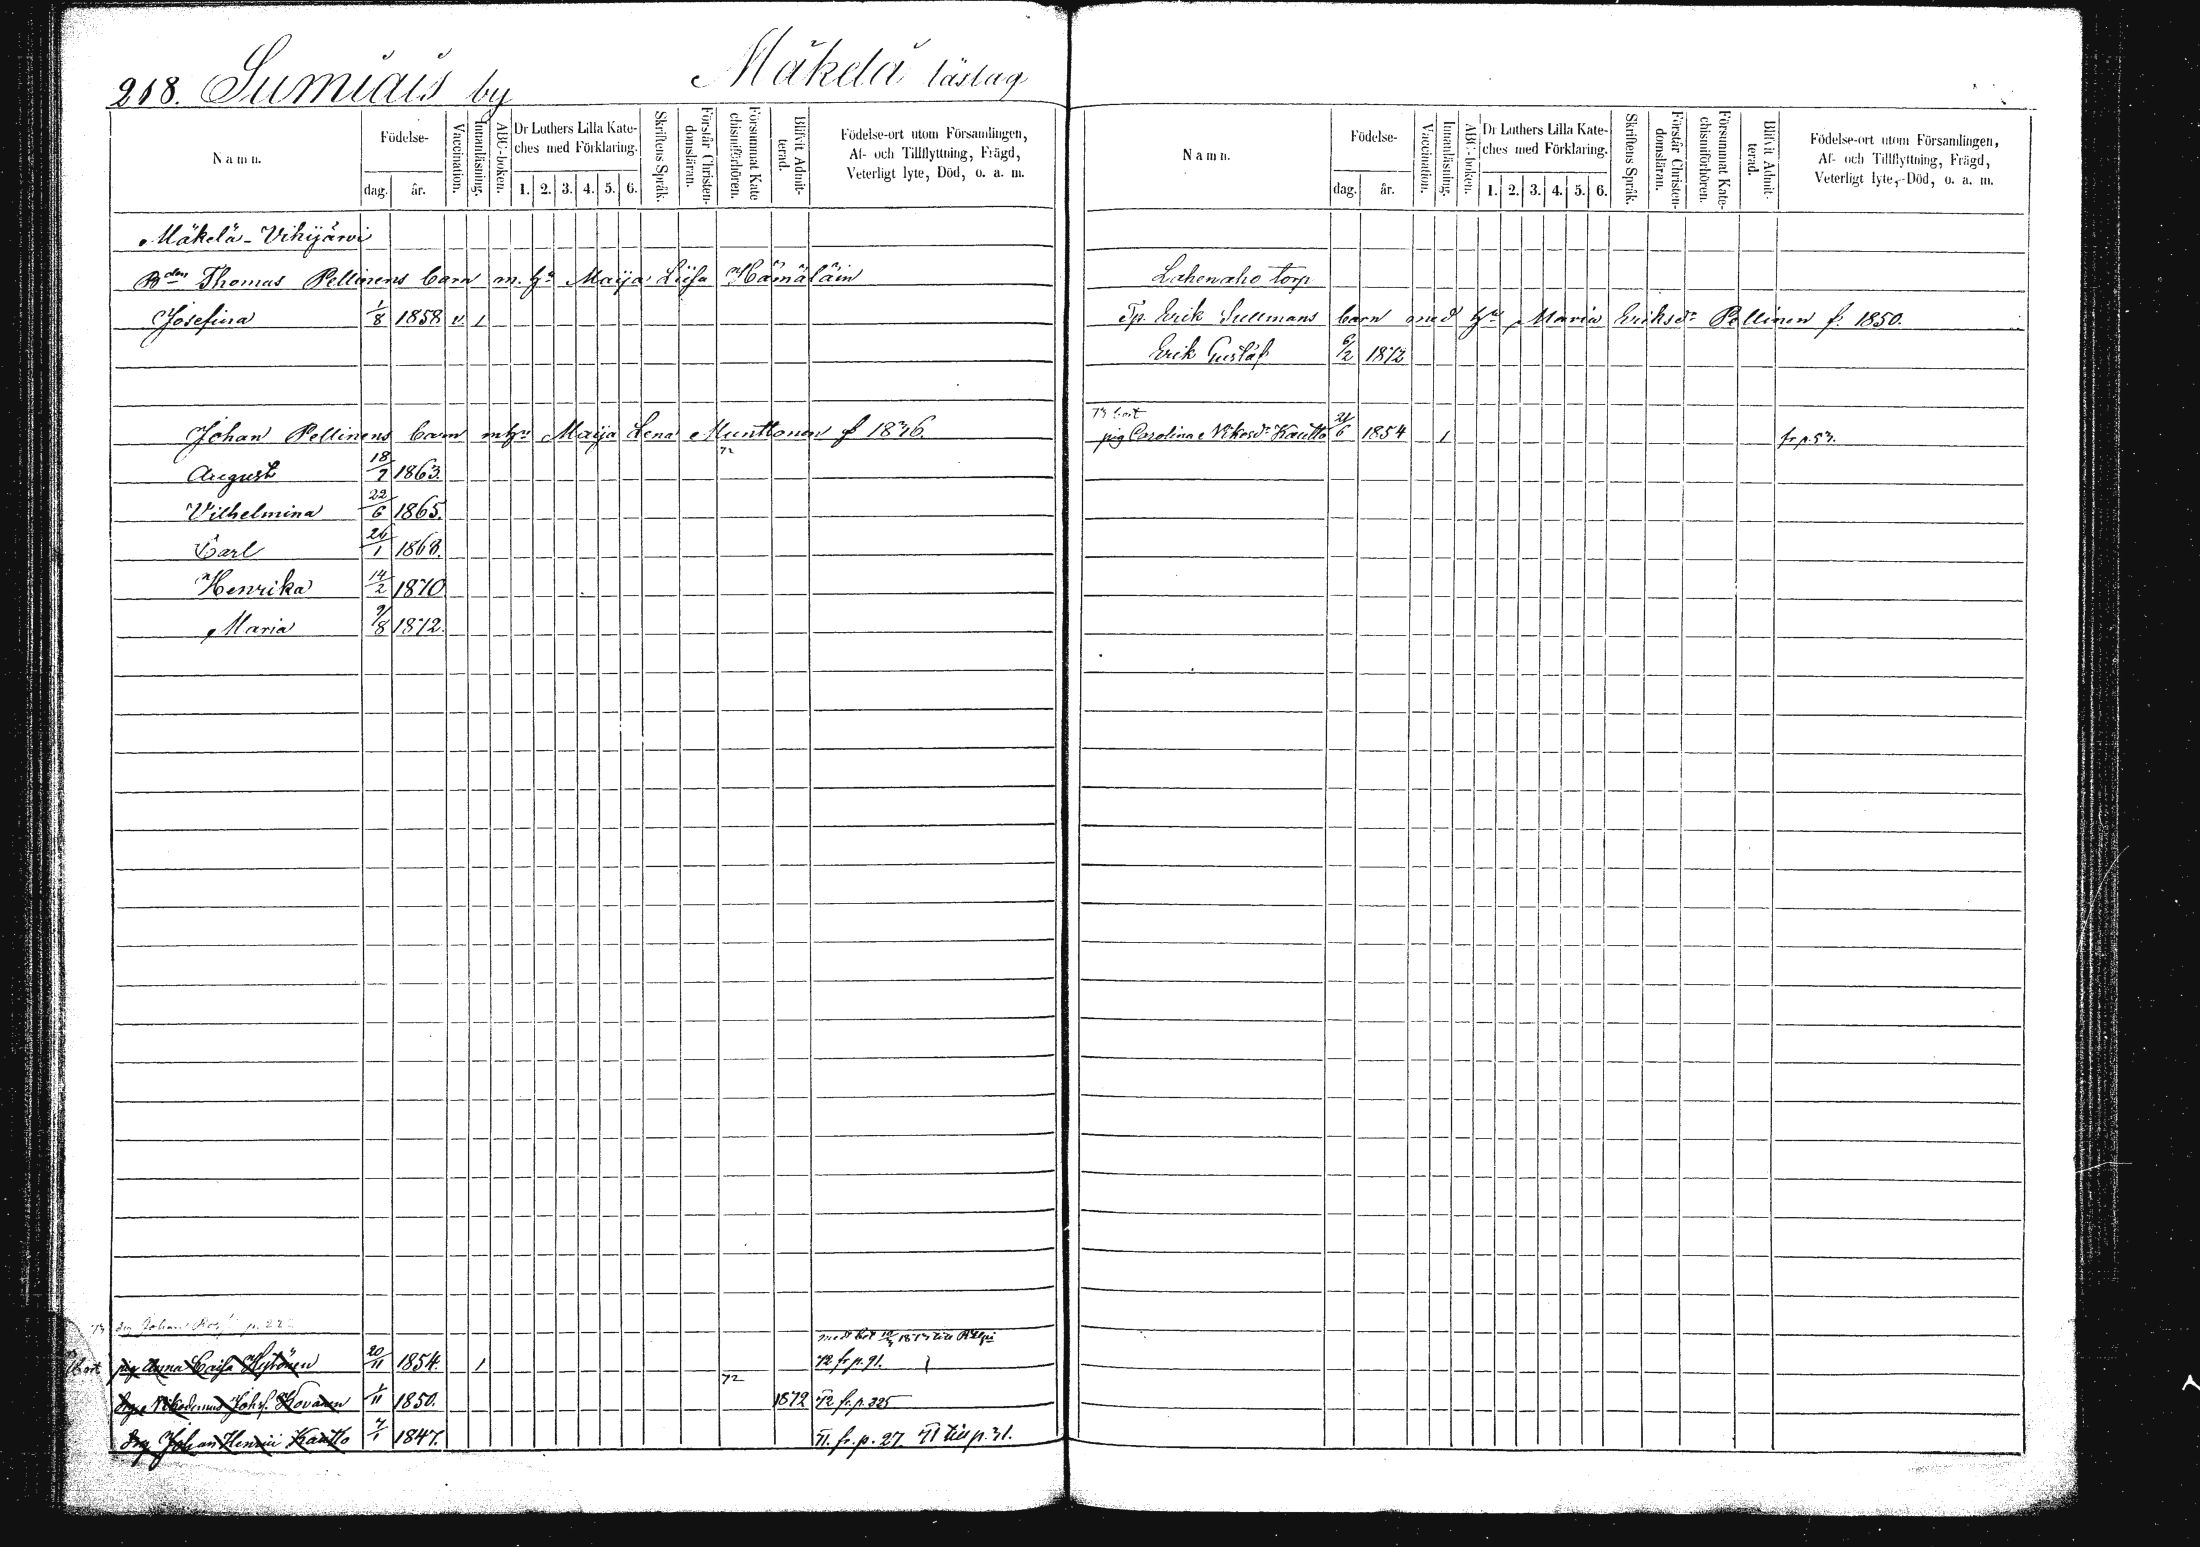 218. Sumiais by Mäkelä läslag
Namn. Födelse- dag. år. Vaccination. Innanläsning. ABC-boken. Dr Luthers Lilla Kateches med Förklaring. 1. 2. 3. 4. 5. 6. Skriftens Språk. Förstår Christendomsläran. Försummat Katechismiförhören. Blifvit Admitterad. Födelse-ort utom Församlingen, Af- och Tillflyttning, Frägd, Veterligt lyte, Död, o. a. m.
Mäkelä-Vihijärvi
Bden Thomas Pellinens barn m. hu Maija Liisa Hämäläin
Josefina 1/8 1858 v. 1
Johan Pellinens barn m hu Maija Lena Munttonen f 1836.
72
August 18/7 1863.
Vilhelmina 22/6 1865.
Carl 26/1 1868.
Henrika 14/2 1870
Maria 9/8 1872.
73 drg Johan p. 22
med bet 1873 till
bort pig Anna Caisa Hytönen 20/11 1854. 1 72 fr p. 91.
72
drg Nikodemus Johs. Kovanen 1/11 1850. 1872 72 fr. p. 225
drg Johan Henrici Kautto 7/1 1847. 71. fr. p. 27. 71 till p. 31.
Namn. Födelse- dag. år. Vaccination. Innanläsning. ABC-boken. Dr Luthers Lilla Kateches med Förklaring. 1. 2. 3. 4. 5. 6. Skriftens Språk. Förstår Christendomsläran. Försummat Katechismiförhören. Blifvit Admitterad. Födelse-ort utom Församlingen, Af- och Tillflyttning, Frägd, Veterligt lyte, Död, o. a. m.
Lahenaho torp
Tp. Erik Sullmans barn med hu Maria Eriksdr Pellinen f. 1850.
Erik Gustaf 6/2 1872
73 bort
pig Carolina Nikosdr Kautto 21/6 1854 1 fr p. 53.